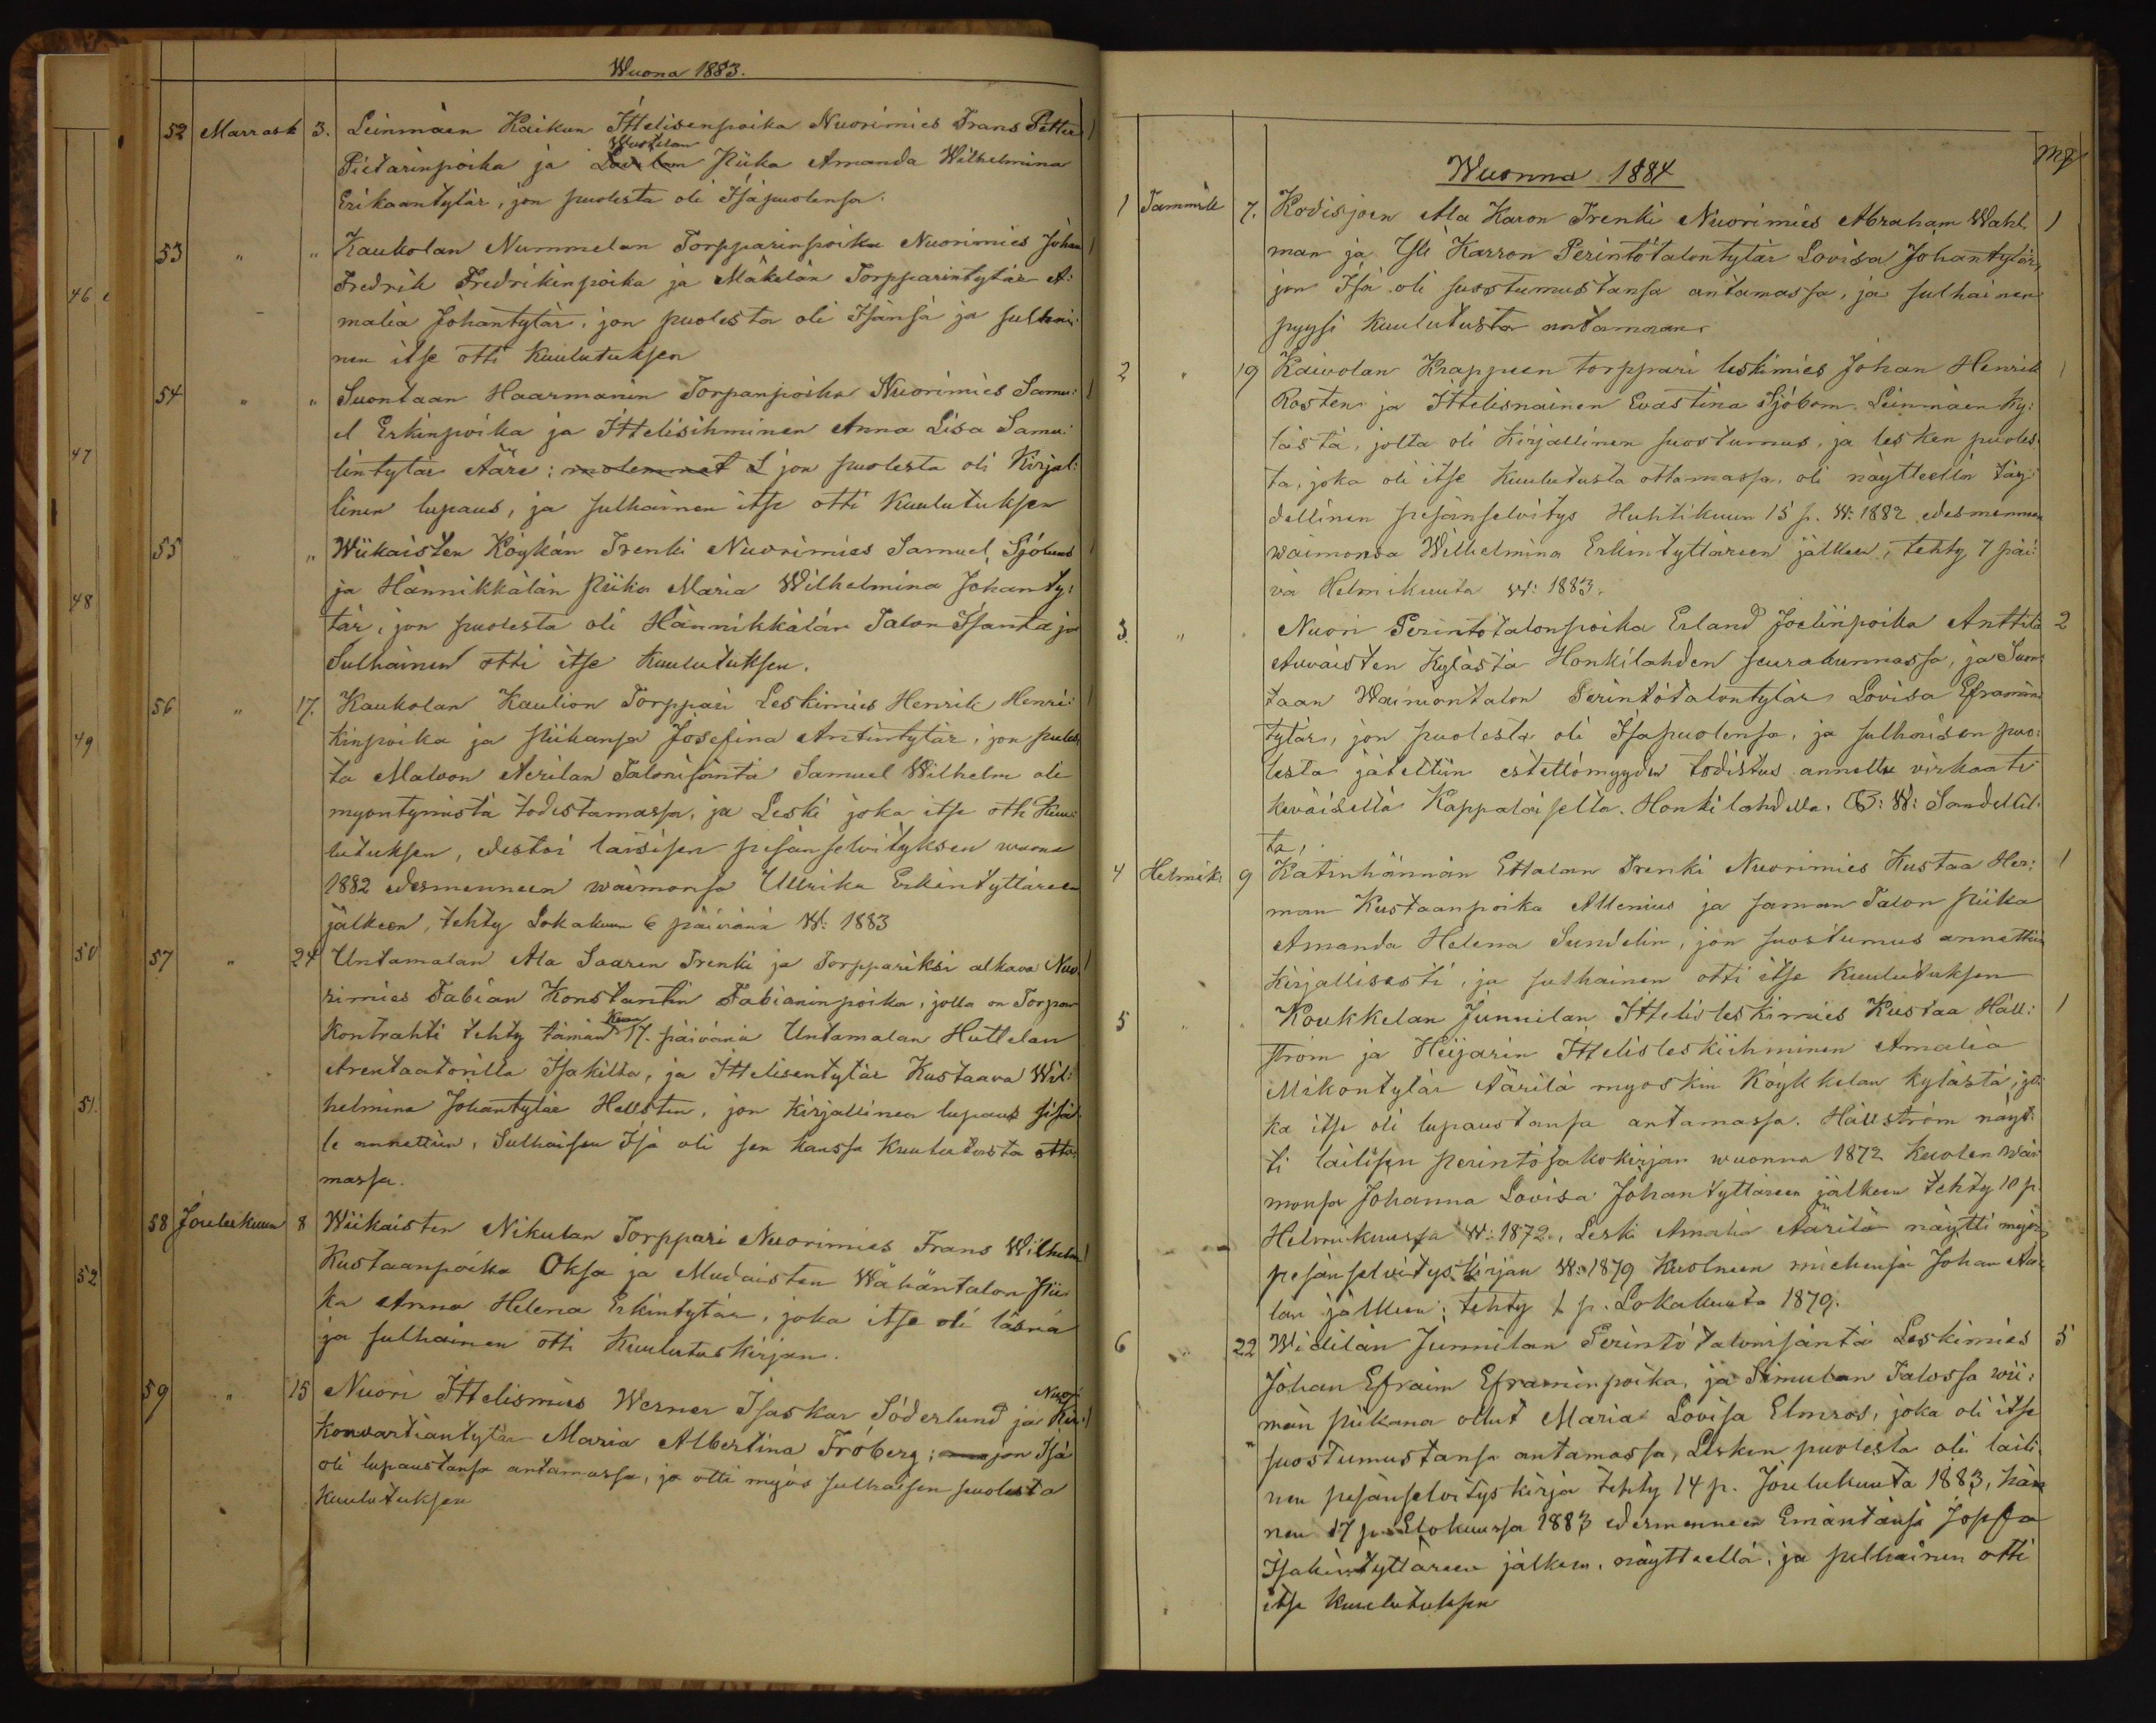 Wuona 1883.
52 Marrask 3. Leinmäen Kaikun Ittelisenpoika Nuorimies Frans Petter 1
Wustelan
Pietarinpoika ja Piika Amanda Wilhelmina
Erikaantytär, jon puolesta oli Isäpuolensa.
53 " " Kaukolan Nummelan Torpparinpoika Nuorimies Johan 1
Fredrik Fredrikinpoika ja Mäkelän Torpparintytär A:
malia Johantytär, jon puolesta oli Isänsä ja sulhai:
nen itse otti Kuulutuksen
54 " " Suontaan Haarmanin Torpanpoika Nuorimies Samu: 1
el Erkinpoika ja Ittelisihminen Anna Lisa Samu:
lintytär Ääri: molemmat jon puolesta oli Kirjal:
linen lupaus, ja sulhainen itse otti Kuulutuksen
55 " " Wiikaisten Köykän Trenki Nuorimies Samuel 1
ja Hännikkälän Piika Maria Wilhelmina Johanty:
tär, jon puolesta oli Hännikkälän Talon Isäntä ja
Sulhainen otti itse Kuulutuksen.
56 " 17. Kaukolan Kaulion Torppari Leskimies Henrik Henri: 1
kinpoika ja piikansa Josefina Antintytär, jon puoles
ta Talonisäntä Samuel Wilhelm oli
myöntymistä todistamassa, ja Leski joka itse otti Kuu:
lutuksen, edestoi laisisen pesänselvityksen wuona
1882 edesmenneen waimonsa Ullrika Erkintyttäreen
jälkeen, tehty Lokakuun 6 päivänä W: 1883
57 " 24 Untamalan Ala Saaren Trenki ja Torppariksi alkava Nuo: 1
rimies Fabian Konstantin Fabianinpoika, jolla on Torpan
Kuun
Kontrahti tehty tämän 17. päivänä Untamalan Huttelan
Arentaatorilta Isakilta, ja Ittelisentytär Kustaava Wil:
helmina Johantytär Hellsten, jon Kirjallinen lupaus
le annettiin, Sulhaisen Isä oli sen kanssa Kuulutusta otta:
massa.
58 Joulukuun 8 Wiikaisten Nikulan Torppari Nuorimies Frans Wilhelm 1
Kustaanpoika Oksa ja Mudaisten Wähäntalon Pii:
ka Anna Helena Erkintytär, joka itse oli läsnä
ja sulhainen otti Kuulutuskirjan.
59 " 15 Nuori Ittelismies Werner Isaskar Söderlund ja Nuori Kir: 1
konvartiantytär Maria Albertina Fröberg; jon Isä
oli lupaustansa antamassa, ja otti myös sulhaisen puolesta
Kuulutuksen
46
47
48
49
50
51.
52
Wuonna 1884
1 Tammik 7. Kodisjoen Ala Karon Trenki Nuorimies Abraham Wahl 1
man ja Yli Karron Perintötalontytär Lovisa Johantytär,
jon Isä oli suostumustansa antamassa, ja sulhainen
pyysi Kuulutusta antamaan.
2 " 19 Kaivolan Krappeen torppari leskimies Johan Henrik 1
Rosten ja Ittelisnainen Evastina Sjöbom Leinmäen Ky:
lästä, jolta oli Kirjallinen suostumus, ja lesken puoles
ta, joka oli itse Kuulutusta ottamassa, oli näytteellä täy:
dellinen pesänselvitys Huhtikuun 15 p. W: 1882 edesmenneen
waimonsa Wilhelmina Erkintyttäreen jälkeen, tehty 7 päi:
vä Helmikuuta w: 1883.
3. " Nuori Perintötalonpoika Erland Joelinpoika Anttila 2
Auvaisten Kylästä Honkilahden seurakunnassa, ja Suon:
taan Waimontalon Perintötalontytär Lovisa Eframin
tytär, jon puolesta oli Isäpuolensa, ja sulhaisen puo:
lesta jätettiin estettömyyden todistus annettu virkaate
keväiseltä Kappalaiselta Honkilahdella, W: Sandell:
ta,
4 Helmik: 9 Katinhännän Ettalan Trenki Nuorimies Kustaa Her: 1
man Kustaanpoika Allenius ja saman Talon Piika
Amanda Helena Sundelin, jon suostumus annettiin
Kirjallisesti, ja sulhainen otti itse Kuulutuksen
5 " Koukkelan Junnilan Ittelisleskimies Kustaa Häll: 1
ström ja Heijarin Ittelisleskiihminen Amalia
Mikontytär Äärilä myöskin Köykkelän kylästä, jo:
ka itse oli lupaustansa antamassa. Hällström näyt:
ti laillisen perintöjakokirjan wuonna 1872 Kuolen wai
monsa Johanna Lovisa Johantyttären jälkeen tehty 10 p.
Helmikuussa W: 1872, Leski Amalia Äärilä näytti myös
pesänselvityskirjan W: 1879 Kuolneen miehensä Johan Ääri
län jälkeen, tehty 1 p. Lokakuuta 1879.
6 " 22 Widilän Junnilan Perintötalonisäntä Leskimies 5
Johan Efraim Eframinpoika, ja Simulan Talossa wii:
men piikana ollut Maria Lovisa Elmros, joka oli itse
suostumustansa antamassa, Lesken puolesta oli laili
nen pesänselvityskirja tehty 14 p. Joulukuuta 1883, hän
nen 17 p. Elokuussa 1883 edesmenneen Emäntänsä Josefa
Isakintyttären jälkeen, näytteellä, ja sulhainen otti
itse Kuulutuksen